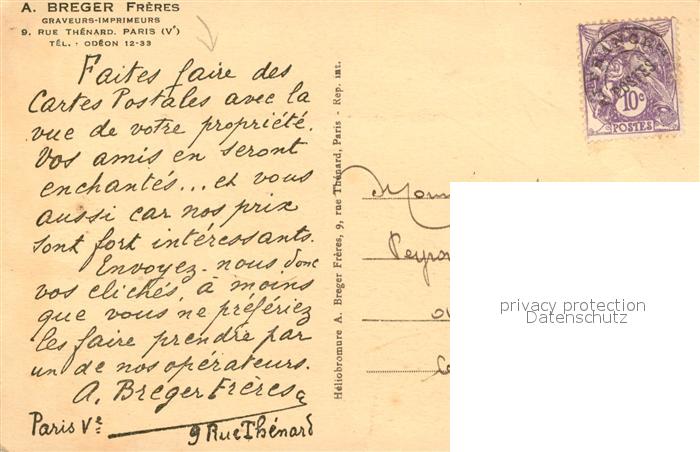 A. BREGER FRÈRES
GRAVEURS-IMPRIMEURS
9, RUE THÉNARD. PARIS (Vᵉ)
TÉL. · ODÉON 12-33
Faites faire des
Cartes Postales avec la
vue de votre propriété.
Vos amis en seront
enchantés... et vous
aussi car nos prix
sont fort intéressants.
Envoyez-nous donc
vos clichés, à moins
que vous ne préfériez
les faire prendre par
un de nos opérateurs.
A. Breger Frères
Paris Vᵉ 9 Rue Thénard
Héliobromure A. Breger Frères, 9, rue Thénard, Paris - Rep. int.
FRANCE
POSTES
10c
POSTES
privacy protection
Datenschutz